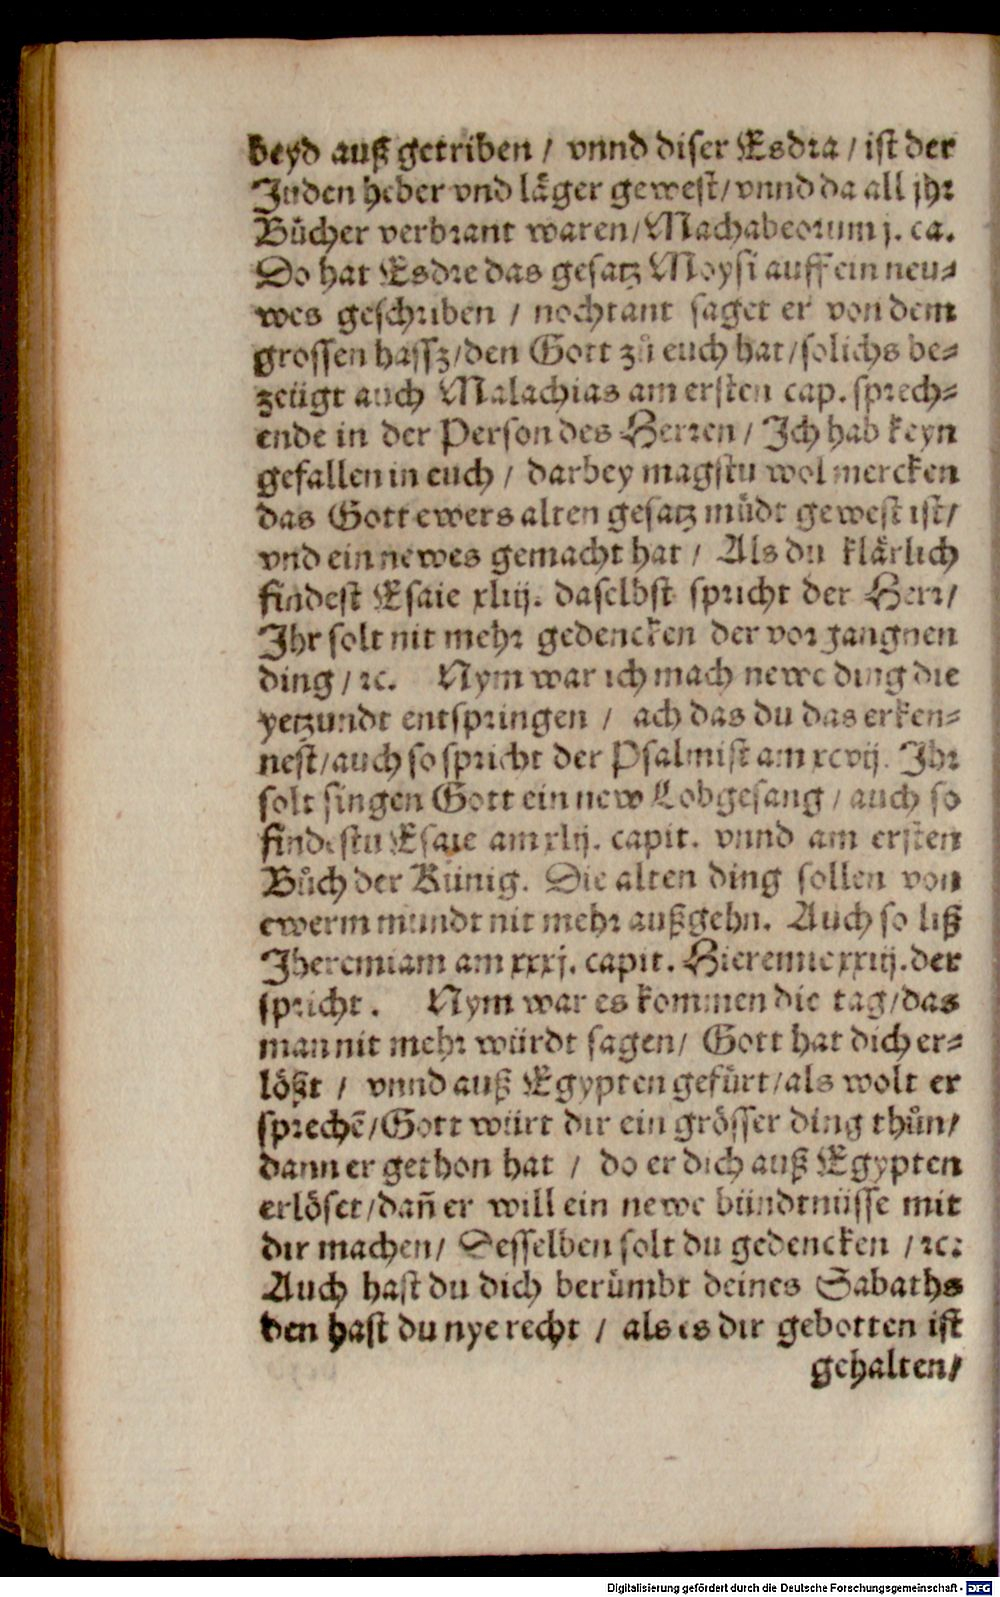 beyd auß getriben / vnnd diser Esdra / ist der
Juden heber vnd läger gewest / vnnd da all jhr
Bücher verbrant waren / Machabeorum j. ca.
Do hat Esdre das gesatz Moysi auff ein neu⸗
wes geschriben / nochtant saget er von dem
grossen hassz / den Gott zů euch hat / solichs be⸗
zeügt auch Malachias am ersten cap. sprech⸗
ende in der Person des Herren / Ich hab keyn
gefallen in euch / darbey magstu wol mercken
das Gott ewers alten gesatz müdt gewest ist /
vnd ein newes gemacht hat / Als du klärlich
findest Esaie xliij. daselbst spricht der Herr /
Ihr solt nit mehr gedencken der vorgangnen
ding / ꝛc. Nym war ich mach newe ding die
yetzundt entspringen / ach das du das erken⸗
nest / auch so spricht der Psalmist am xcvij. Ihr
solt singen Gott ein new Lobgesang / auch so
findestu Esaie am xlij. capit. vnnd am ersten
Bůch der Künig. Die alten ding sollen von
ewerm mundt nit mehr außgehn. Auch so liß
Jheremiam am xxxj. capit. Hieremie xxiij. der
spricht. Nym war es kommen die tag / das
man nit mehr würdt sagen / Gott hat dich er⸗
lößt / vnnd auß Egypten gefürt / als wolt er
sprechē / Gott würt dir ein grösser ding thůn /
dann er gethon hat / do er dich auß Egypten
erlöset / dañ er will ein newe bündtnüsse mit
dir machen / Desselben solt du gedencken / ꝛc:
Auch hast du dich berümbt deines Sabaths
den hast du nye recht / als es dir gebotten ist
gehalten /
Digitalisierung gefördert durch die Deutsche Forschungsgemeinschaft - DFG